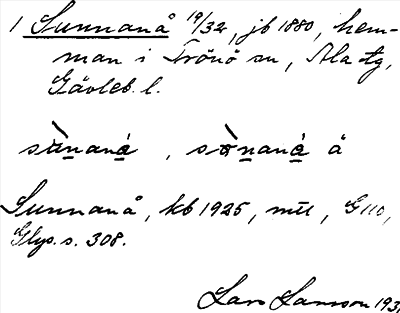 1 Sunnanå 19/32, jb 1880, hem-
man i Trönö sn, Ala tg,
Gävleb. l.
sùnaná, sònaná å
Sunnanå, kb 1925, mil, G 110,
Glys. s. 308.
Lars Larsson 193